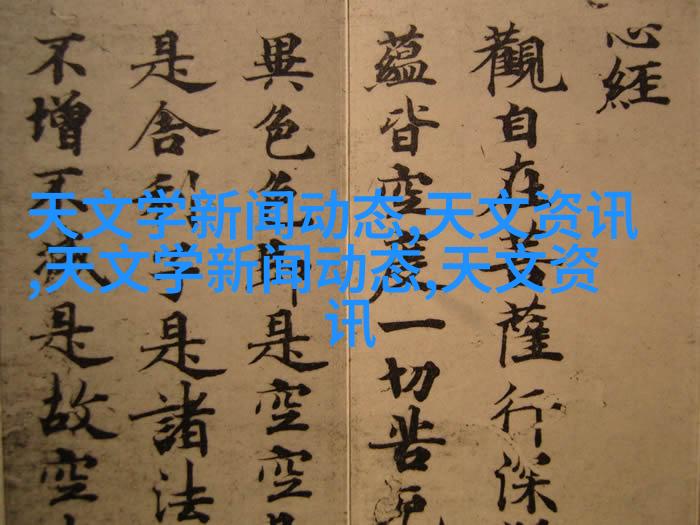 心經
觀自在菩薩行深
蘊皆空度一切苦厄
異色色即是空空是
是舍利子是諸法
不增不減是故空
天文学新闻动态,天文资讯
,天文学新闻动态,天文资
讯